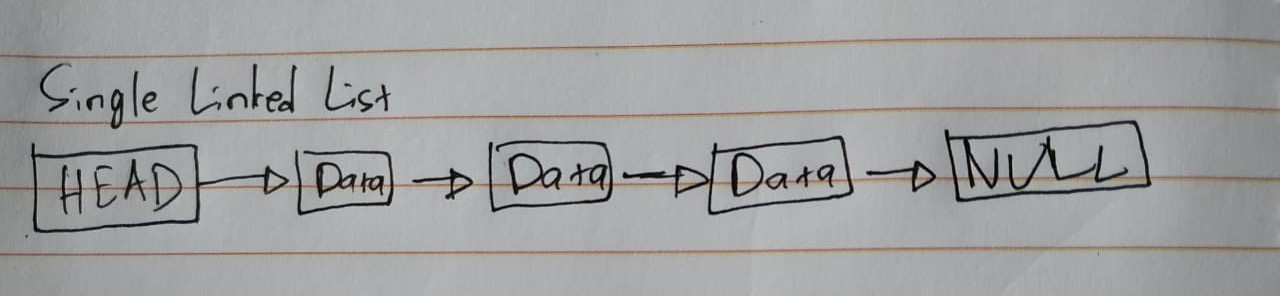 Single Linked List
HEAD Data Data Data NULL